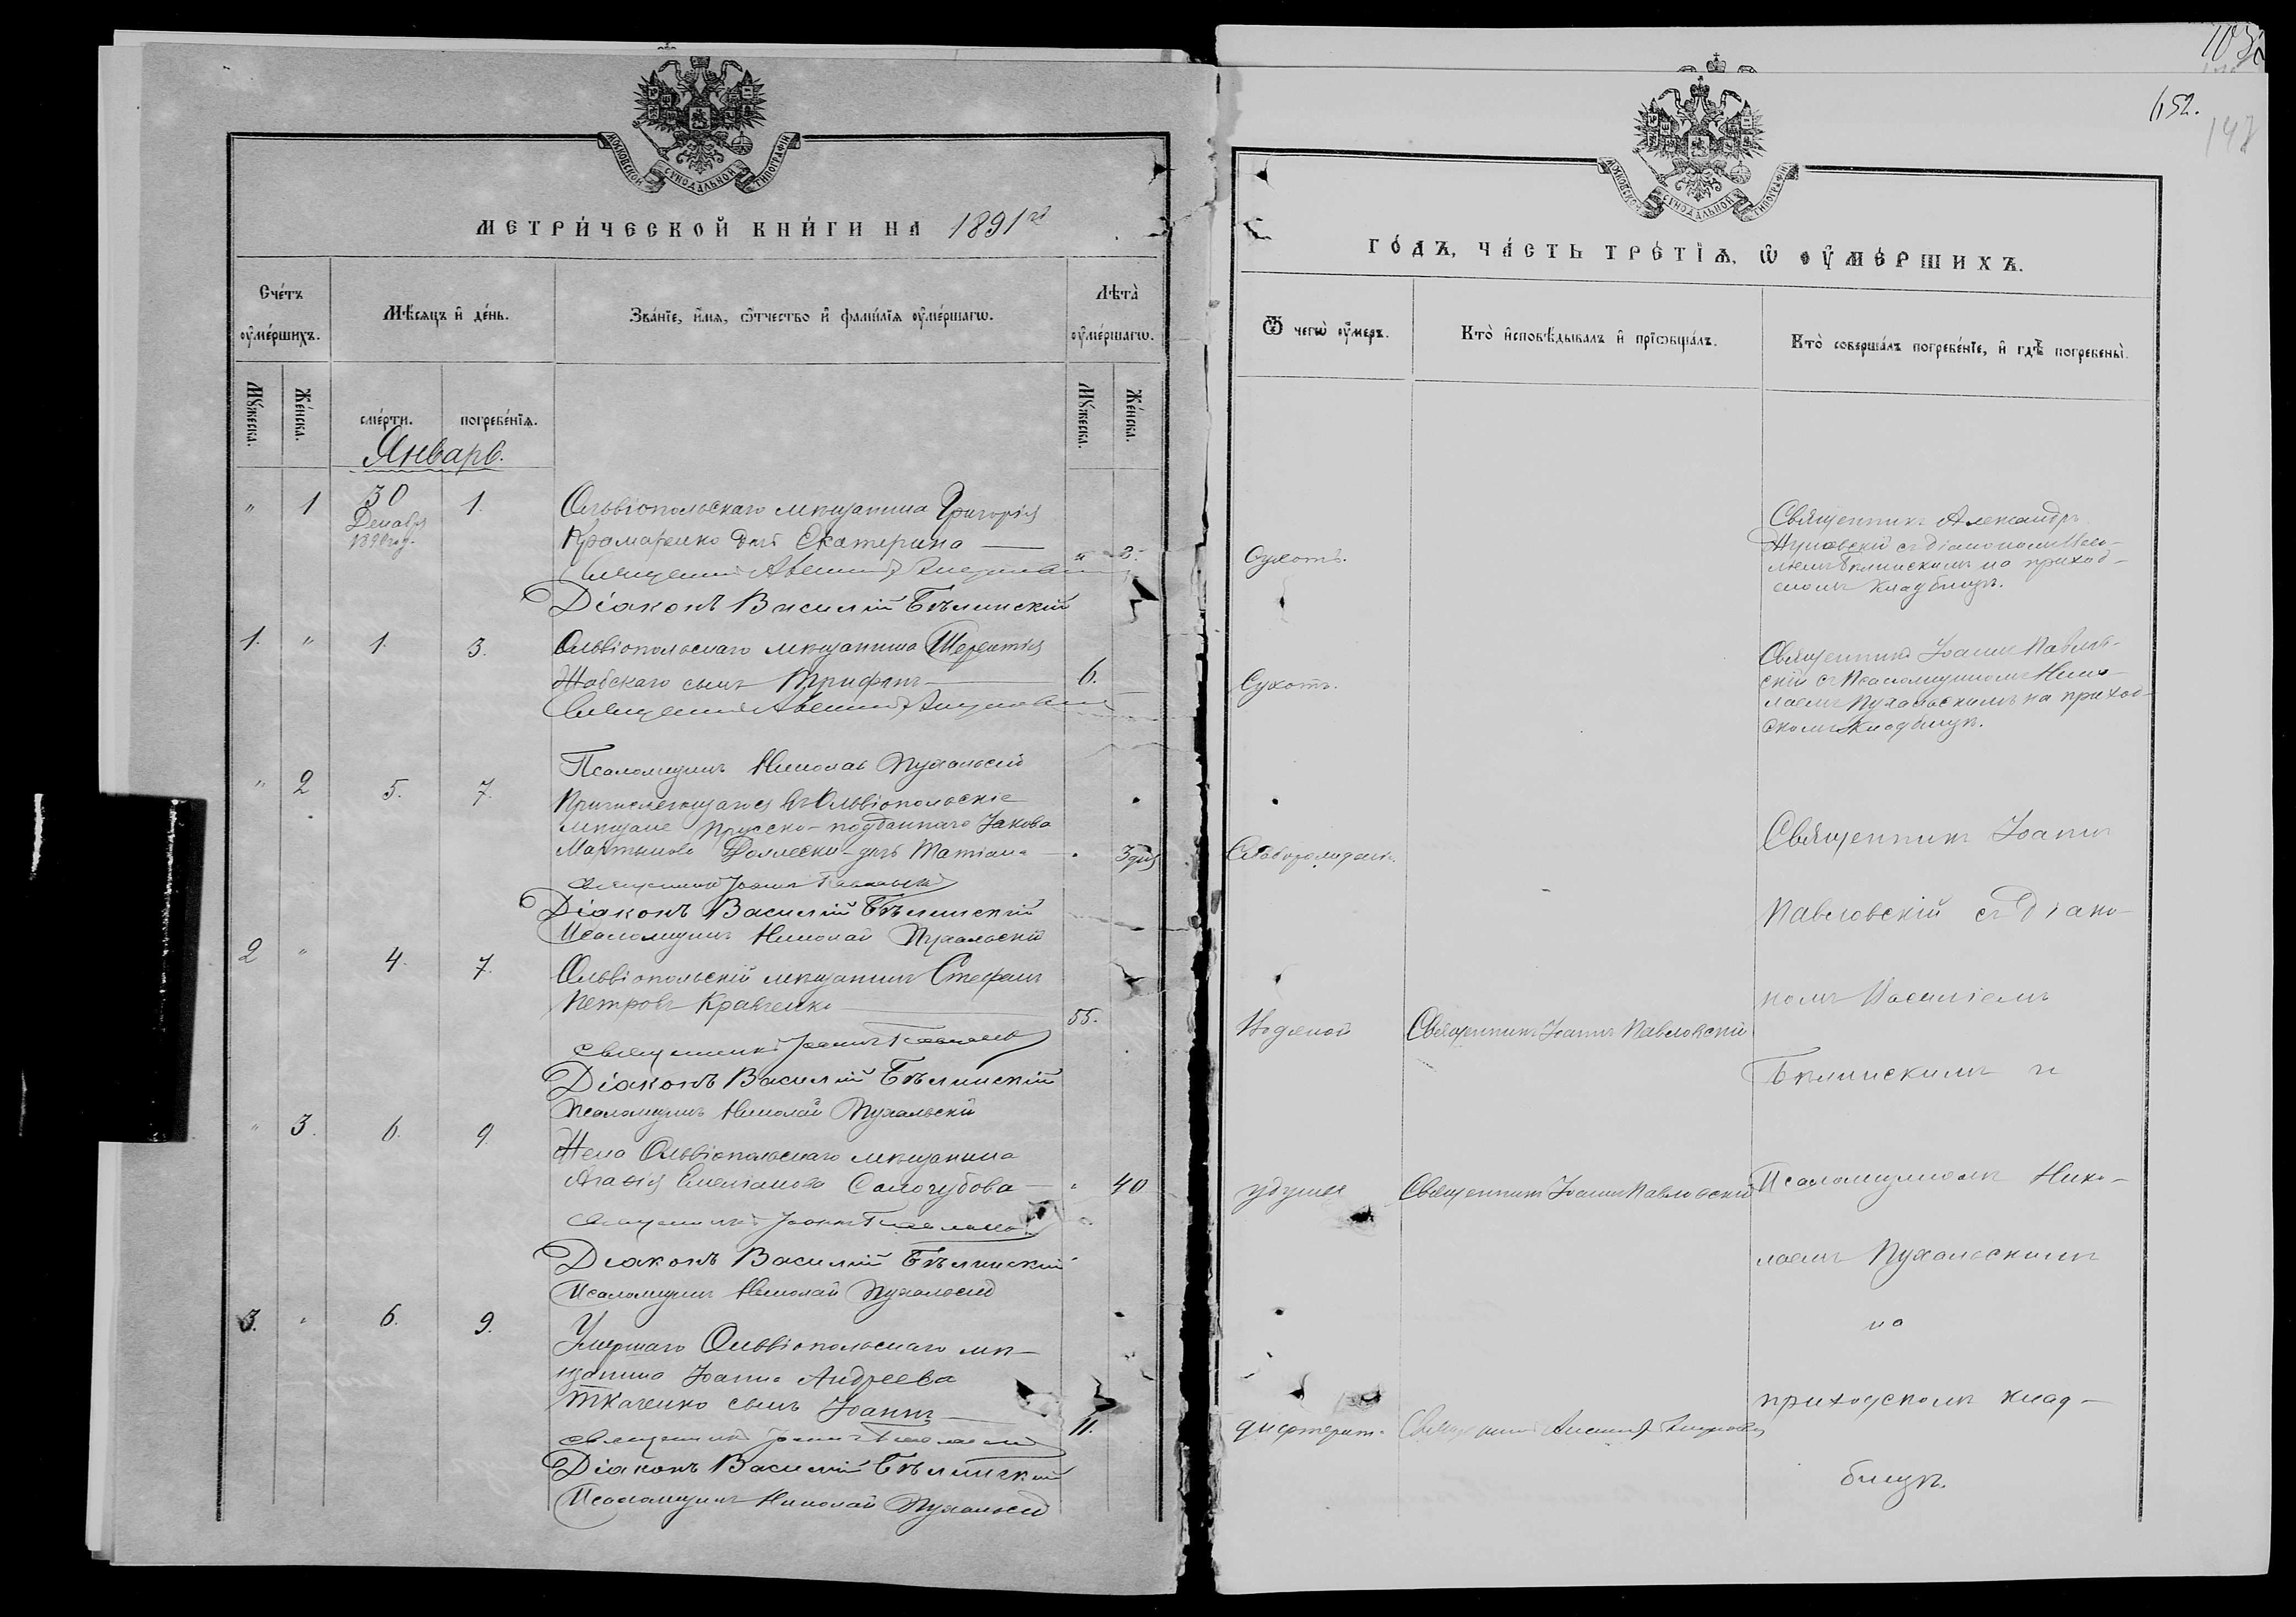 МОСКОВСКОЙ СѴНОДАЛЬНОЙ ТИПОГРАФІИ
МЕТРИ́ЧЕСКОЙ КНИ́ГИ НА 1891 гд
Сче́тъ ѹ҆ме́ршихъ.
Мѣ́сяцъ и҆ де́нь.
Зва́нїе, и҆́мѧ, ѻ҆́тчество и҆ фами́лїѧ ѹ҆ме́ршагѡ.
Лѣта̀ ѹ҆ме́ршагѡ.
Мꙋ́жеска. Же́нска.
сме́рти. погребе́нїѧ.
Мꙋ́жеска. Же́нска.
Январь.
" 1 30 Декабря 1890 году. 1.
Ольвіопольскаго мѣщанина Григорія
Крамаренко дочь Екатерина — " 2.
Діаконъ Василій Бѣлинскій
1. " 1. 3.
Ольвіопольскаго мѣщанина Терентія
Жабскаго сынъ Трифонъ — 6.
Псаломщикъ Николай Пухальскій
" 2 5. 7.
Причисляющагося въ Ольвіопольскіе
мѣщане Прусско-подданнаго Іакова
Мартынова дочь Татіана — 3 дня
Священникъ Іоаннъ Павловскій
Діаконъ Василій Бѣлинскій
Псаломщикъ Николай Пухальскій
2 " 4. 7.
Ольвіопольскій мѣщанинъ Стефанъ
Петровъ Кравченко — 55.
Священникъ Іоаннъ Павловскій
Діаконъ Василій Бѣлинскій
Псаломщикъ Николай Пухальскій
" 3. 6. 9.
Жена Ольвіопольскаго мѣщанина
Агафія Емеліанова Сологубова — " 40
Священникъ Іоаннъ Павловскій
Діаконъ Василій Бѣлинскій
Псаломщикъ Николай Пухальскій
3. " 6. 9.
Умершаго Ольвіопольскаго мѣ-
щанина Іоанна Андреева
Ткаченко сынъ Іоаннъ — 11.
Священникъ Іоаннъ Павловскій
Діаконъ Василій Бѣлинскій
Псаломщикъ Николай Пухальскій
652.
147
МОСКОВСКОЙ СѴНОДАЛЬНОЙ ТИПОГРАФІИ
ГО́ДЪ, ЧА́СТЬ ТРЕ́ТЇѦ, Ѡ ОУ҆МЕ́РШИХЪ.
Ѿ чегѡ̀ ѹ҆́меръ.
Кто̀ и҆сповѣ́дывалъ и҆ прїѡбща́лъ.
Кто̀ соверша́лъ погребе́нїе, и҆ гдѣ̀ погребены̀.
Сухотъ.
Священникъ Александръ
съ діакономъ Васи-
ліемъ Бѣлинскимъ на приход-
скомъ кладбищѣ.
Сухотъ.
Священникъ Іоаннъ Павлов-
скій съ Псаломщикомъ Нико-
лаемъ Пухальскимъ на приход-
скомъ кладбищѣ.
Священникъ Іоаннъ
Павловскій съ Діако-
номъ Василіемъ
Бѣлинскимъ и
Псаломщикомъ Нико-
лаемъ Пухальскимъ
на
приходскомъ клад-
бищѣ.
Водяной
Священникъ Іоаннъ Павловскій
удушья
Священникъ Іоаннъ Павловскій
дифтерит.